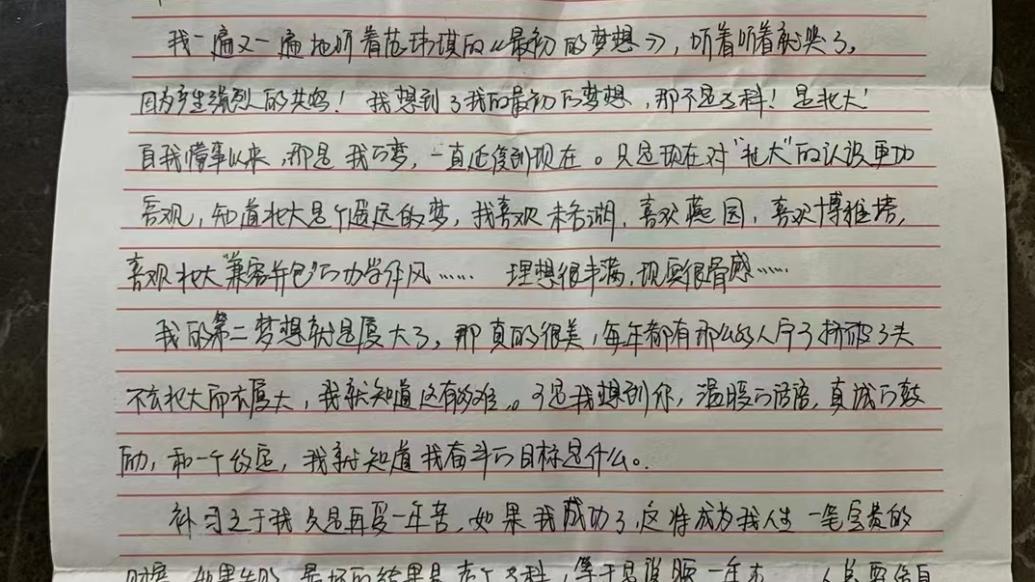 我一遍又一遍地听着范玮琪的《最初的梦想》，听着听着就哭了，
因为产生强烈的共鸣！我想到了我的最初的梦想，那不是三科！是北大！
自我懂事以来，那是我的梦，一直延续到现在。只是现在对“北大”的认识更加
客观，知道北大是个遥远的梦，我喜欢未名湖，喜欢燕园，喜欢博雅塔，
喜欢北大“兼容并包”的办学作风……理想很丰满，现实很骨感……
我的第二梦想就是厦大了，那真的很美，每年都有那么多人为了挤破了头
不去北大而去厦大，我就知道这有多难。可是我想到你，温暖的话语，真诚的鼓
励，和一个约定，我就知道我奋斗的目标是什么。
补习之于我只是再受一年苦，如果我成功了，这将成为我人生一笔宝贵的
财富，如果失败，最坏的结果是去个三科，等于是说